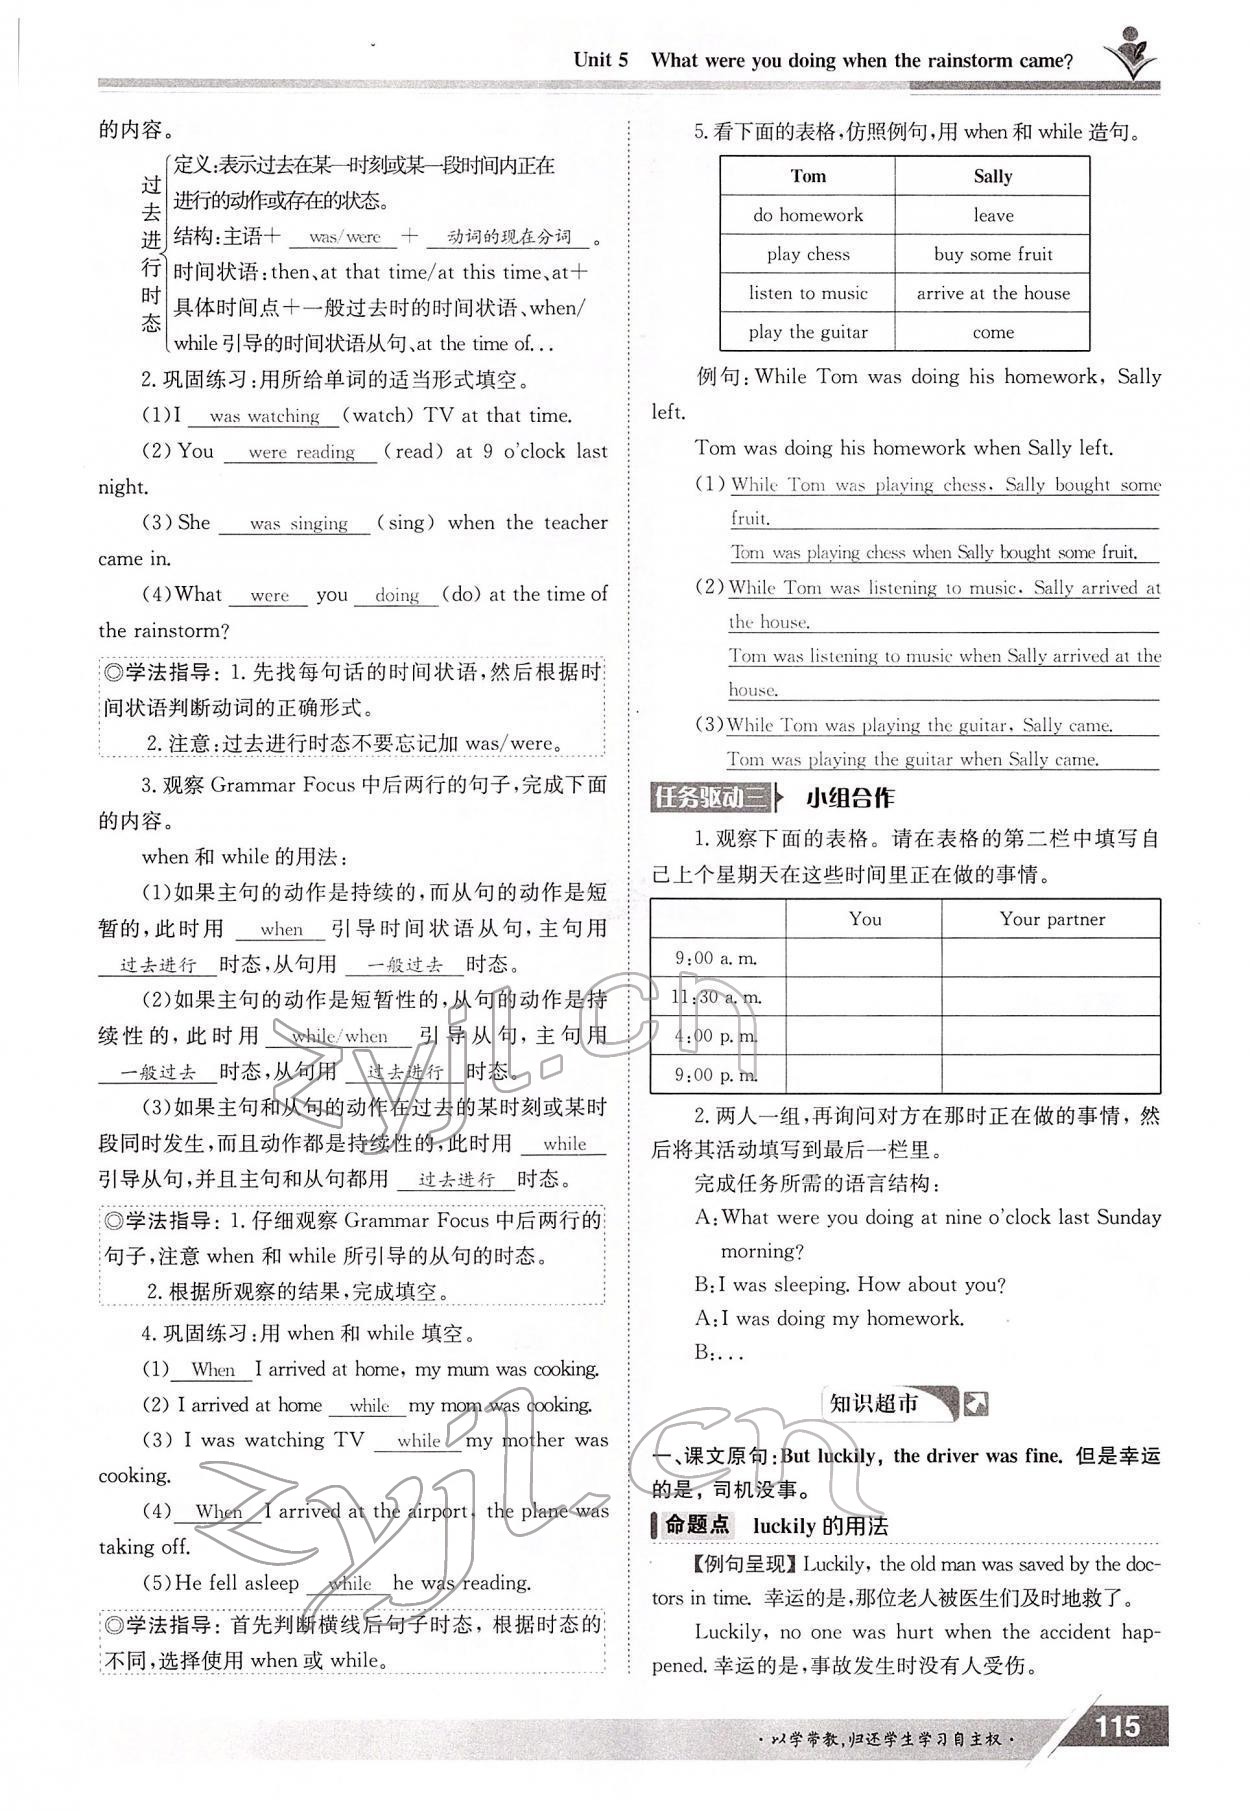 Unit 5 What were you doing when the rainstorm came?
的内容。
过去进行时态
定义:表示过去在某一时刻或某一段时间内正在
进行的动作或存在的状态。
结构:主语＋ was/were ＋ 动词的现在分词 。
时间状语:then、at that time/at this time、at＋
具体时间点＋一般过去时的时间状语、when/
while引导的时间状语从句、at the time of...
2.巩固练习:用所给单词的适当形式填空。
(1)I was watching (watch) TV at that time.
(2)You were reading (read) at 9 o'clock last
night.
(3)She was singing (sing) when the teacher
came in.
(4)What were you doing (do) at the time of
the rainstorm?
◎学法指导: 1.先找每句话的时间状语,然后根据时
间状语判断动词的正确形式。
2.注意:过去进行时态不要忘记加 was/were。
3.观察 Grammar Focus 中后两行的句子,完成下面
的内容。
when 和 while 的用法:
(1)如果主句的动作是持续的,而从句的动作是短
暂的,此时用 when 引导时间状语从句,主句用
过去进行 时态,从句用 一般过去 时态。
(2)如果主句的动作是短暂性的,从句的动作是持
续性的,此时用 while/when 引导从句,主句用
一般过去 时态,从句用 过去进行 时态。
(3)如果主句和从句的动作在过去的某时刻或某时
段同时发生,而且动作都是持续性的,此时用 while
引导从句,并且主句和从句都用 过去进行 时态。
◎学法指导: 1.仔细观察 Grammar Focus 中后两行的
句子,注意 when 和 while 所引导的从句的时态。
2.根据所观察的结果,完成填空。
4.巩固练习:用 when 和 while 填空。
(1) When I arrived at home, my mum was cooking.
(2) I arrived at home while my mom was cooking.
(3) I was watching TV while my mother was
cooking.
(4) When I arrived at the airport, the plane was
taking off.
(5)He fell asleep while he was reading.
◎学法指导: 首先判断横线后句子时态,根据时态的
不同,选择使用 when 或 while。
5.看下面的表格,仿照例句,用 when 和 while 造句。
Tom Sally
do homework leave
play chess buy some fruit
listen to music arrive at the house
play the guitar come
例句:While Tom was doing his homework, Sally
left.
Tom was doing his homework when Sally left.
(1)While Tom was playing chess, Sally bought some
fruit.
Tom was playing chess when Sally bought some fruit.
(2)While Tom was listening to music, Sally arrived at
the house.
Tom was listening to music when Sally arrived at the
house.
(3)While Tom was playing the guitar, Sally came.
Tom was playing the guitar when Sally came.
任务驱动三 小组合作
1.观察下面的表格。请在表格的第二栏中填写自
己上个星期天在这些时间里正在做的事情。
You Your partner
9:00 a. m.
11:30 a. m.
4:00 p. m.
9:00 p. m.
2.两人一组,再询问对方在那时正在做的事情,然
后将其活动填写到最后一栏里。
完成任务所需的语言结构:
A:What were you doing at nine o'clock last Sunday
morning?
B:I was sleeping. How about you?
A:I was doing my homework.
B:...
知识超市
一、课文原句:But luckily, the driver was fine. 但是幸运
的是, 司机没事。
命题点 luckily 的用法
【例句呈现】Luckily, the old man was saved by the doc-
tors in time. 幸运的是,那位老人被医生们及时地救了。
Luckily, no one was hurt when the accident hap-
pened. 幸运的是,事故发生时没有人受伤。
·以学带教,归还学生学习自主权·
115
zyjl.cn
zyjl.cn